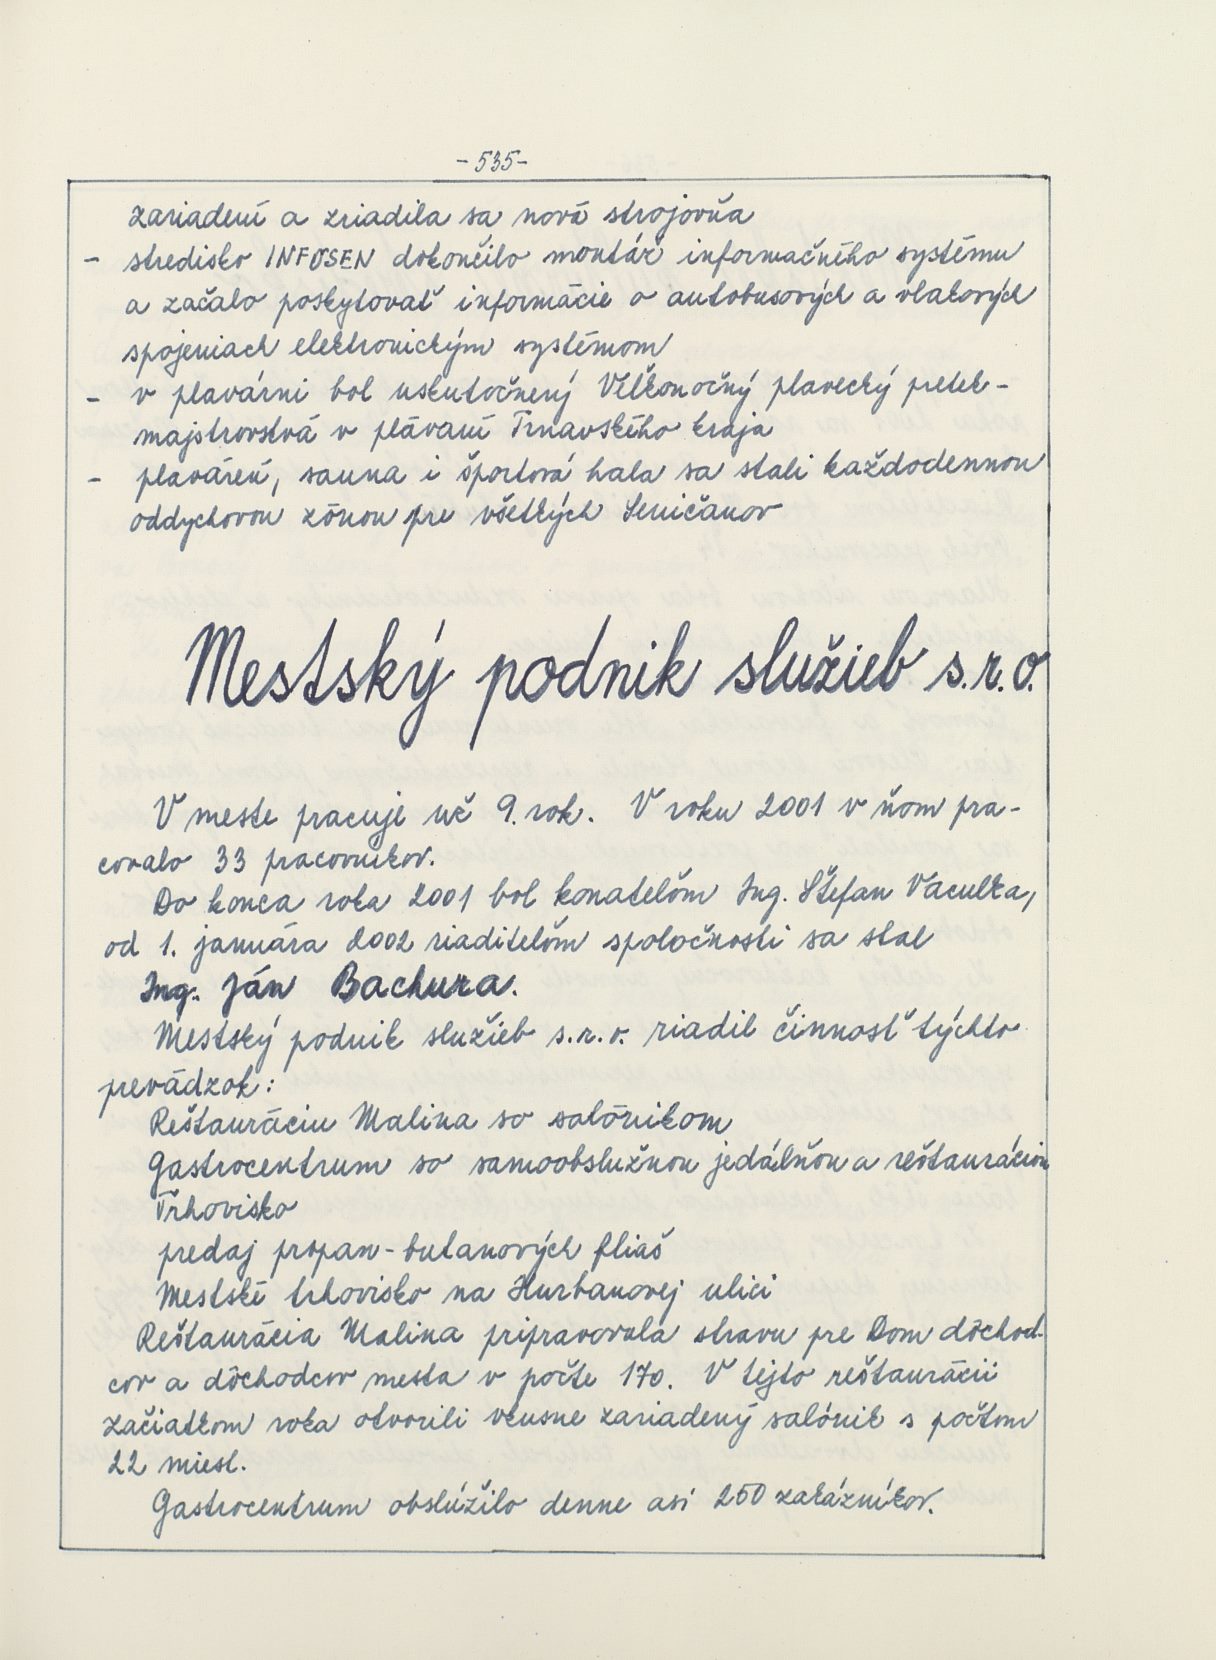 -535-
zariadení a zriadila sa nová strojovňa
- stredisko INFOSEN dokončilo montáž informačného systému
a začalo poskytovať informácie o autobusových a vlakových
spojeniach elektronickým systémom
- v plavárni bol uskutočnený Veľkonočný plavecký pretek -
majstrovstvá v plávaní Trnavského kraja
- plaváreň, sauna i športová hala sa stali každodennou
oddychovou zónou pre všetkých Seničanov
Mestský podnik služieb s.r.o.
V meste pracuje už 9. rok. V roku 2001 v ňom pra-
covalo 33 pracovníkov.
Do konca roka 2001 bol konateľom Ing. Štefan Vaculka,
od 1. januára 2002 riaditeľom spoločnosti sa stal
Ing. Ján Bachura.
Mestský podnik služieb s.r.o. riadil činnosť týchto
prevádzok:
Reštauráciu Malina so salónikom
Gastrocentrum so samoobslužnou jedálňou a reštauráciou
Tŕhovisko
predaj propan-butanových fliaš
Mestské trhovisko na Hurbanovej ulici
Reštaurácia Malina pripravovala stravu pre Dom dôchod-
cov a dôchodcov mesta v počte 170. V tejto reštaurácii
začiatkom roka otvorili vkusne zariadený salónik s počtom
22 miest.
Gastrocentrum obslúžilo denne asi 250 zákazníkov.